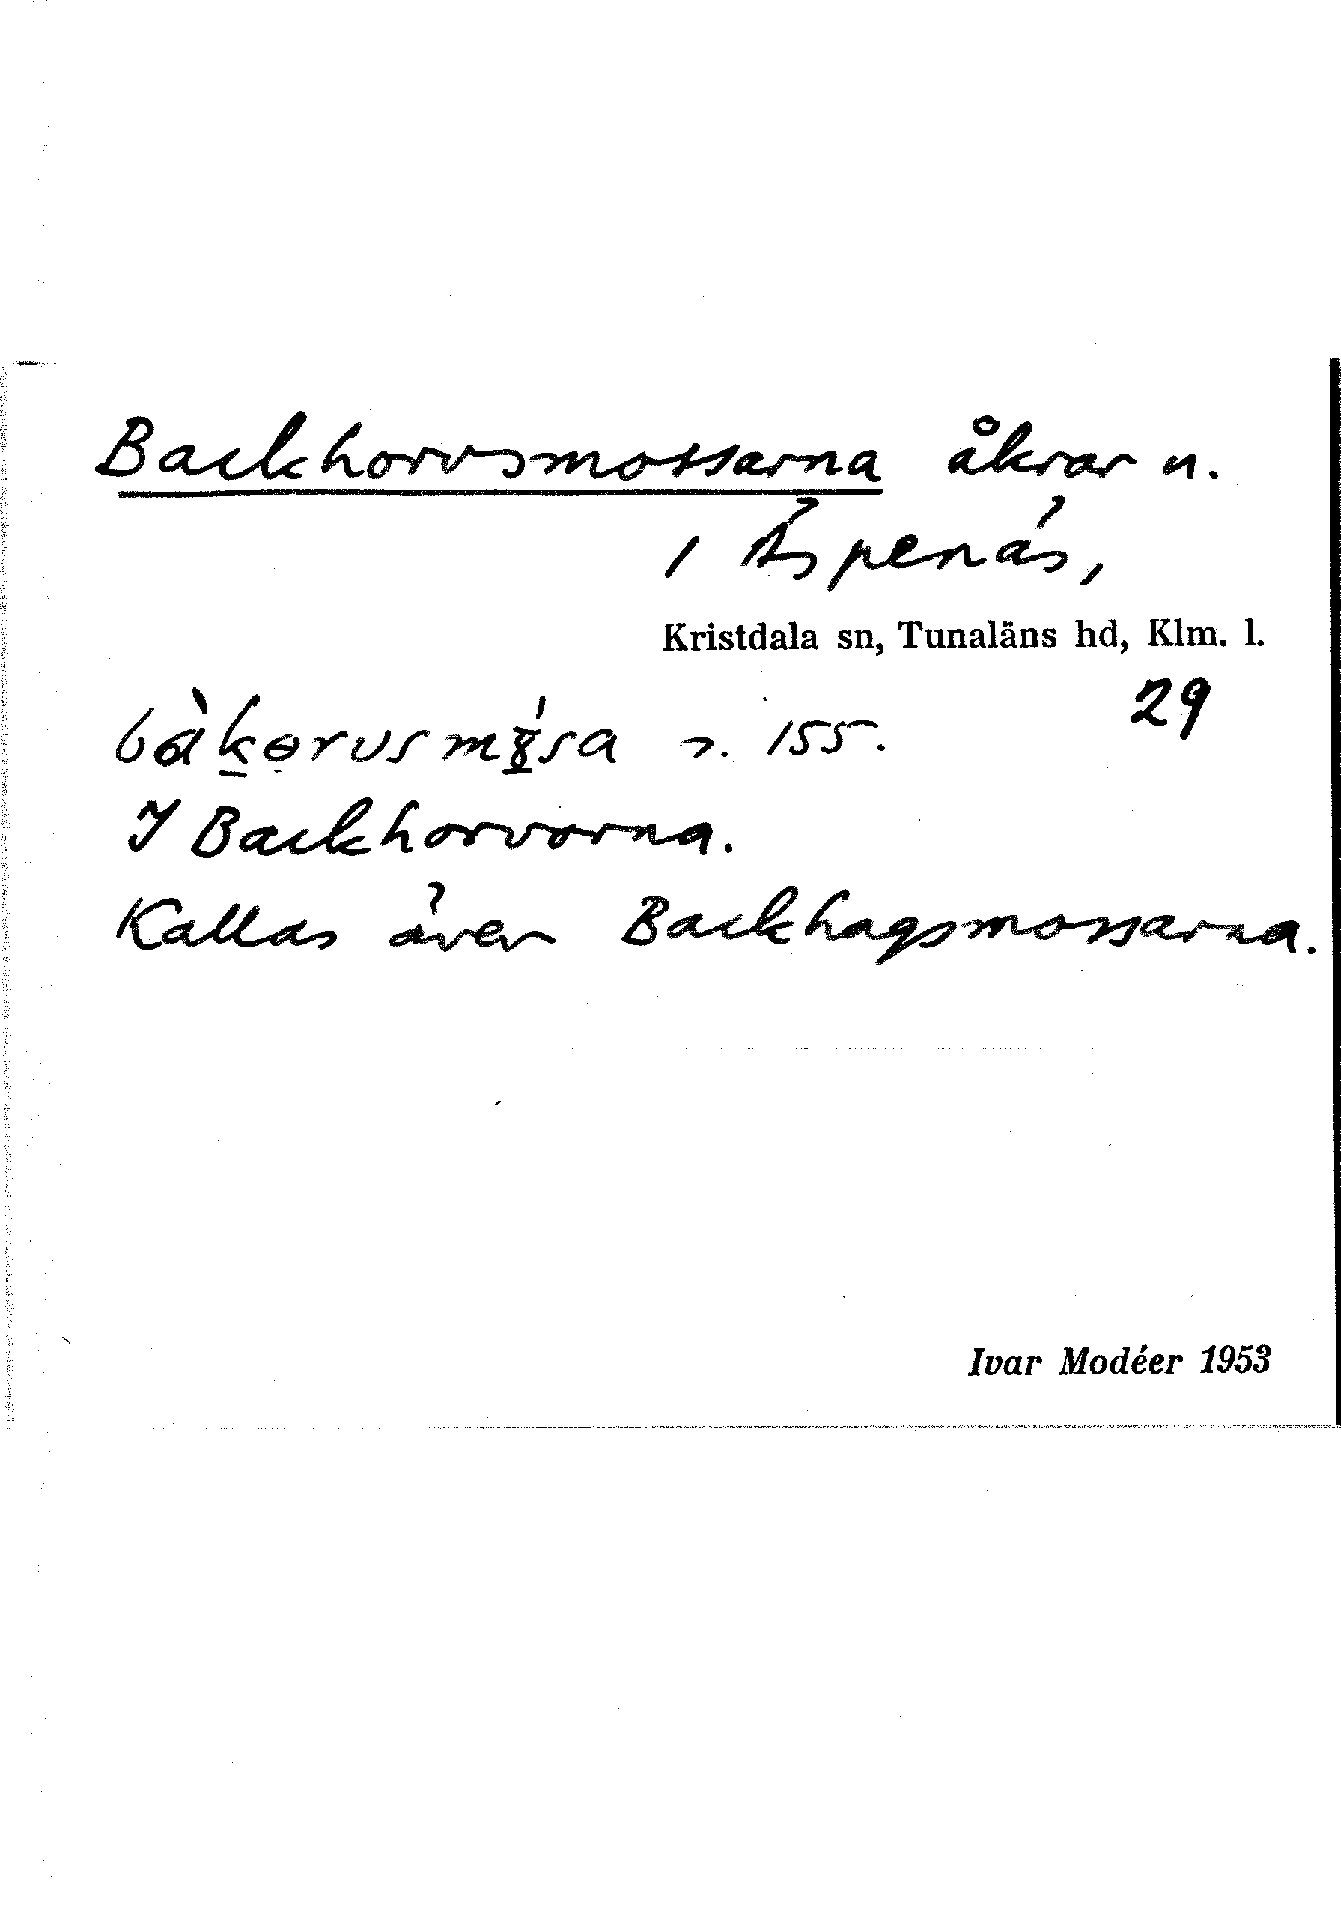 Backhorvsmossarna åkrar n.
1 Äspenäs,
Kristdala sn, Tunaläns hd, Klm. l.
29
155.
I Backhorvorna.
Kallas även Backhagsmossarna.
Ivar Modéer 1953